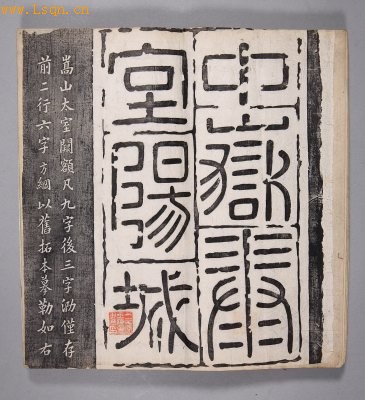 www.lsqn.cn
中嶽泰
室陽城
嵩山太室闕額凡九字後三字泐僅存
前二行六字方綱以舊拓本摹勒如右